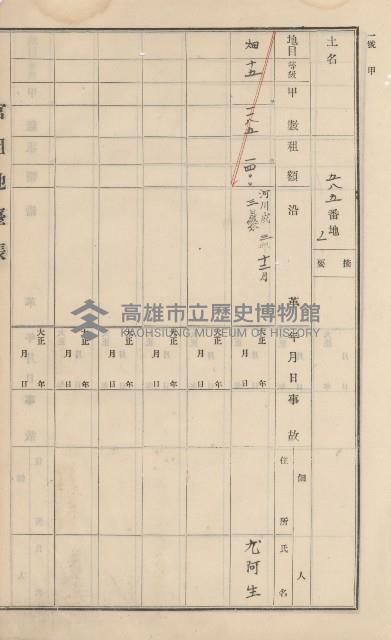 一號 甲
土名
五八五番地
2
摘要
地目
等級
甲數
租額
沿革
年月日
事故
個人
住所
氏名
畑
十五
河川成
十二月
大正 年 月 日
尤阿生
大正 年 月 日
大正 年 月 日
大正 年 月 日
大正 年 月 日
大正 年 月 日
官租地臺帳
高雄市立歷史博物館
KAOHSIUNG MUSEUM OF HISTORY